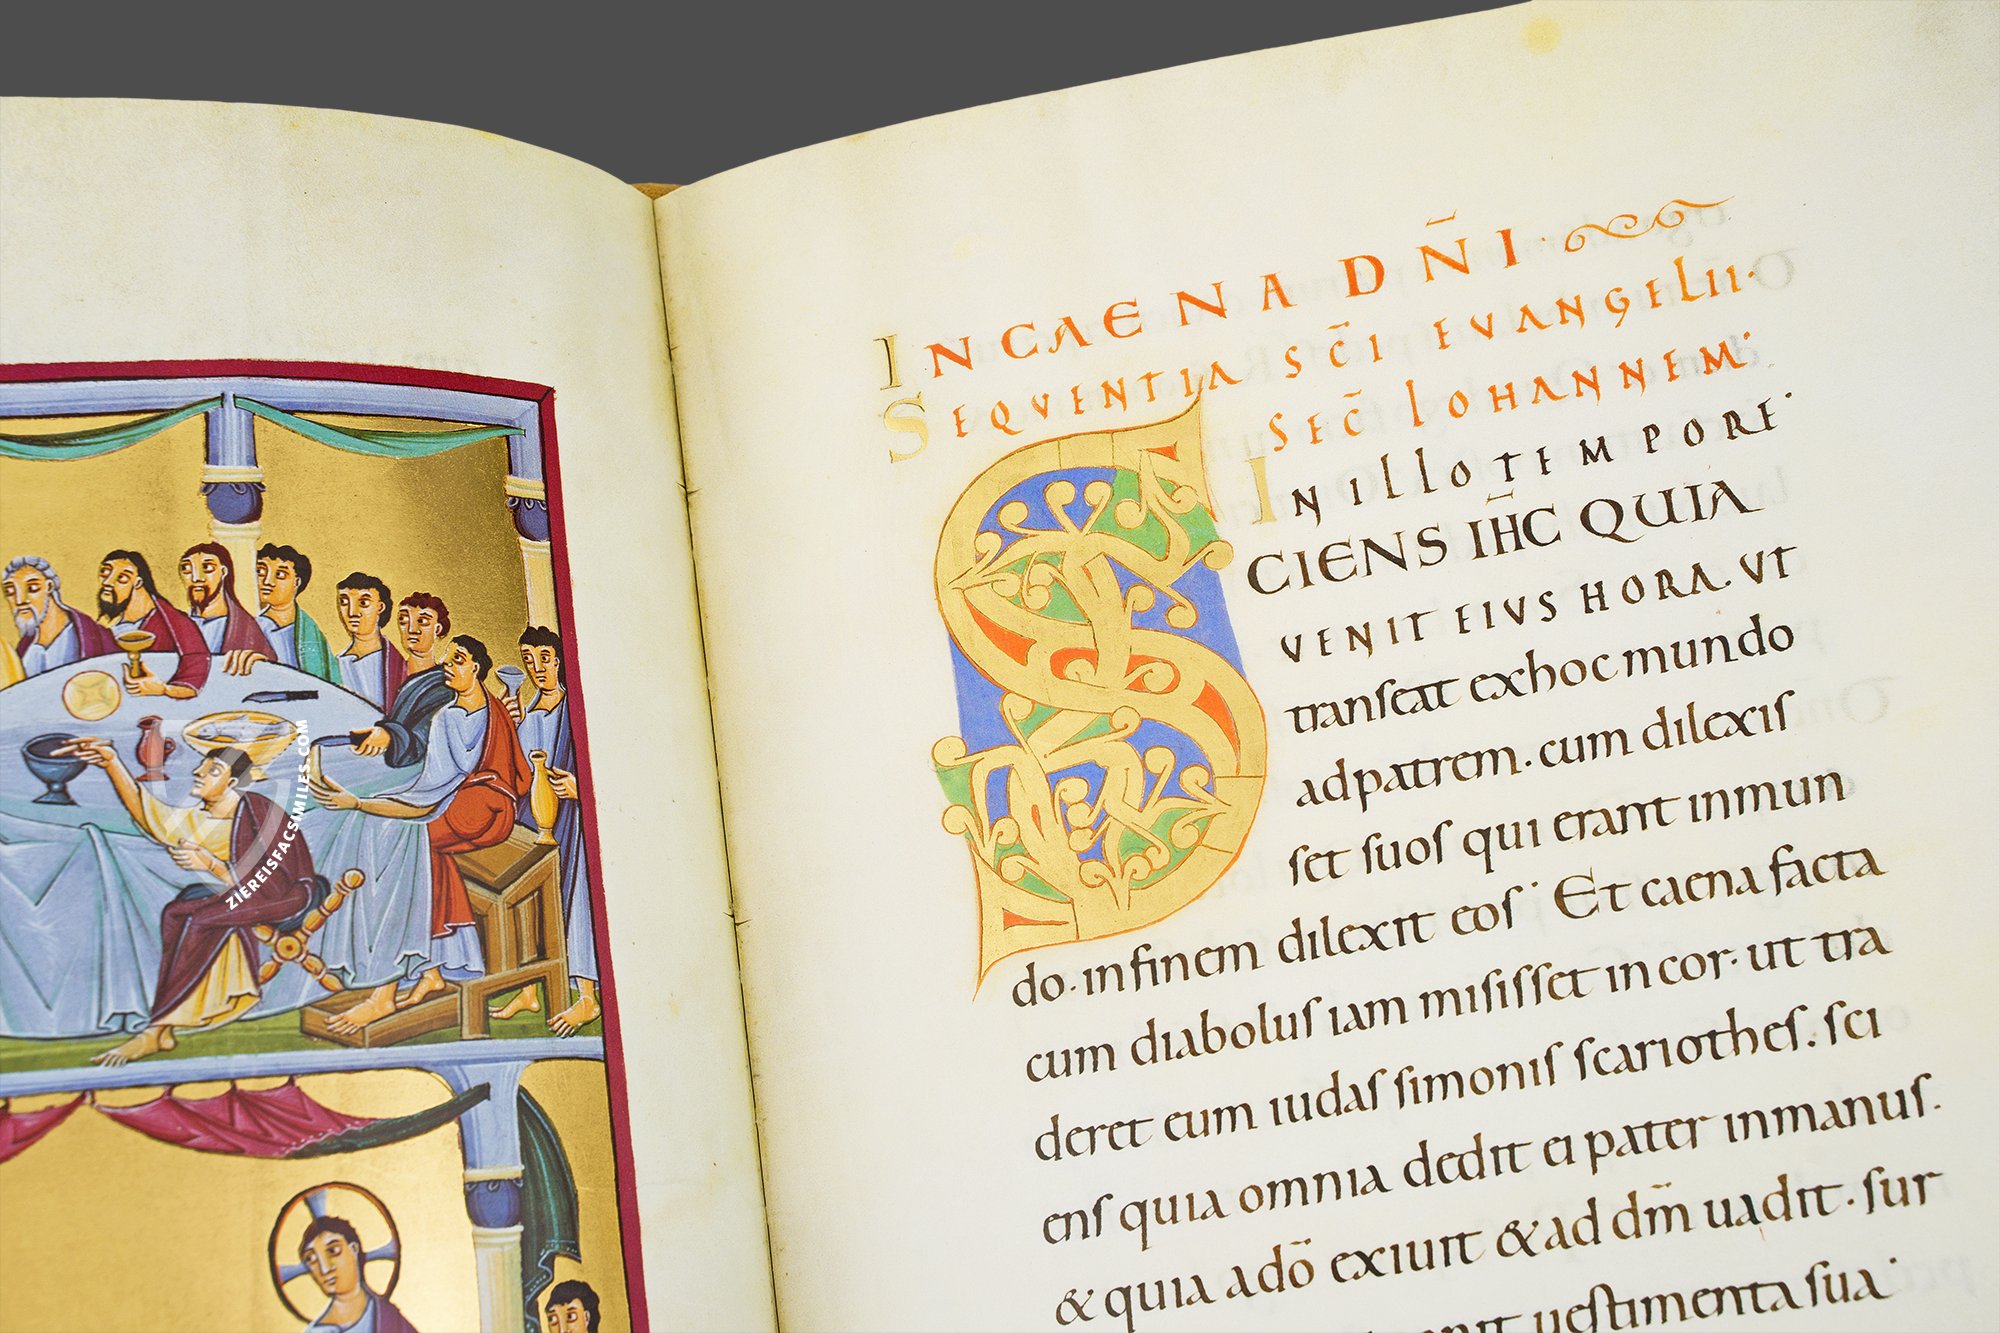 IN CAENA DN̄I
SEQVENTIA SC̄I EVANGELII·
SEC̄ IOHANNEM:
IN ILLO TEMPORE·
SCIENS IH̄C QUIA
VENIT EIVS HORA. VT
tranſeat ex hoc mundo
ad patrem. cum dilexiſ
ſet ſuoſ qui erant in mun
do. in finem dilexit eoſ· Et caena facta
cum diaboluſ iam miſiſſet in cor. ut tra
deret eum iudaſ ſimoniſ ſcariotheſ. ſci
enſ quia omnia dedit ei pater in manuſ.
& quia a dō exiuit & ad dm̄ uadit. ſur
ueſtimenta ſua·
ZIEREISFACSIMILES.COM